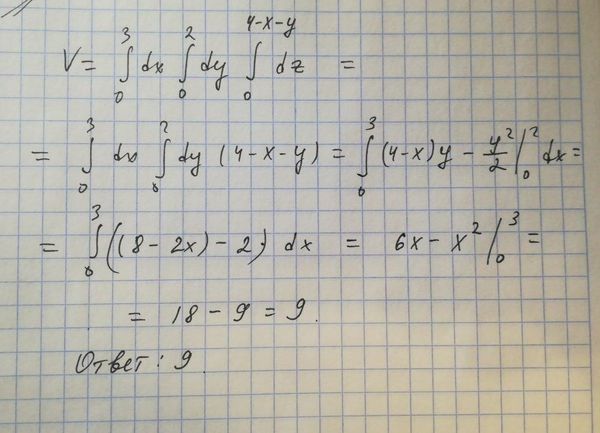 V = ∫₀³ dx ∫₀² dy ∫₀^(4-x-y) dz =
= ∫₀³ dx ∫₀² dy (4-x-y) = ∫₀³ (4-x)y - y²/2 |₀² dx =
= ∫₀³ ((8-2x)-2) dx = 6x - x² |₀³ =
= 18 - 9 = 9.
Ответ: 9.